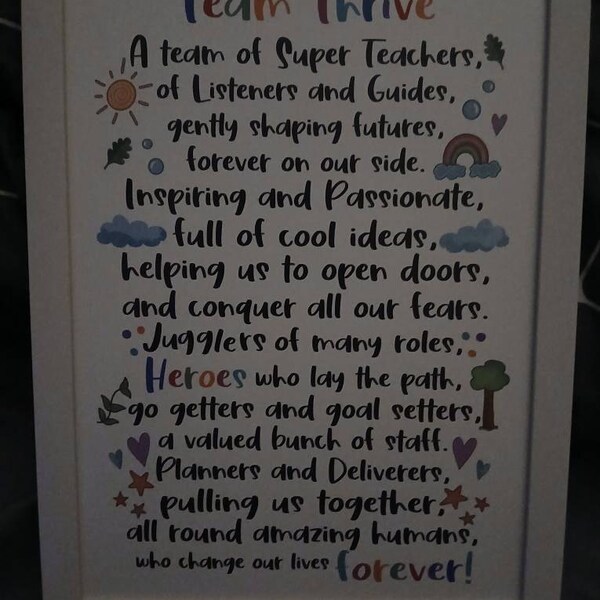 Team Thrive
A team of Super Teachers,
of Listeners and Guides,
gently shaping futures,
forever on our side.
Inspiring and Passionate,
full of cool ideas,
helping us to open doors,
and conquer all our fears.
Jugglers of many roles,
Heroes who lay the path,
go getters and goal setters,
a valued bunch of staff.
Planners and Deliverers,
pulling us together,
all round amazing humans,
who change our lives forever!